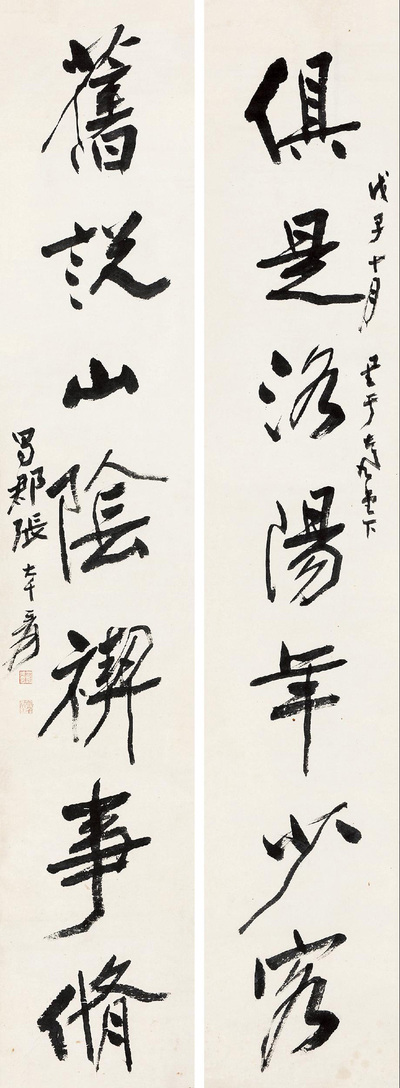 俱是洛陽年少客
戊子十月 呈于大風堂下
舊説山陰禊事脩
蜀郡張大千爰